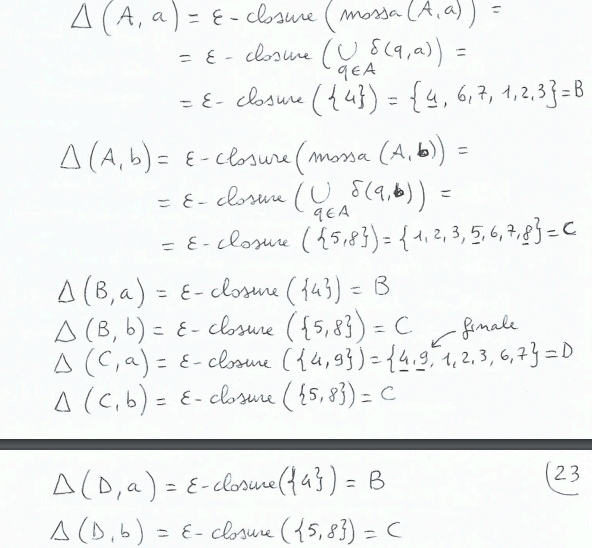 Δ(A, a) = ε-closure (mossa(A, a)) =
= ε-closure (⋃ δ(q,a)) =
q∈A
= ε-closure ({4}) = {4, 6, 7, 1, 2, 3} = B
Δ(A, b) = ε-closure (mossa (A, b)) =
= ε-closure (⋃ δ(q,b)) =
q∈A
= ε-closure ({5,8}) = {1, 2, 3, 5, 6, 7, 8} = C
Δ(B, a) = ε-closure ({4}) = B
Δ(B, b) = ε-closure ({5,8}) = C finale
Δ(C, a) = ε-closure ({4,9}) = {4, 9, 1, 2, 3, 6, 7} = D
Δ(C, b) = ε-closure ({5,8}) = C
Δ(D, a) = ε-closure({4}) = B (23
Δ(D, b) = ε-closure ({5,8}) = C